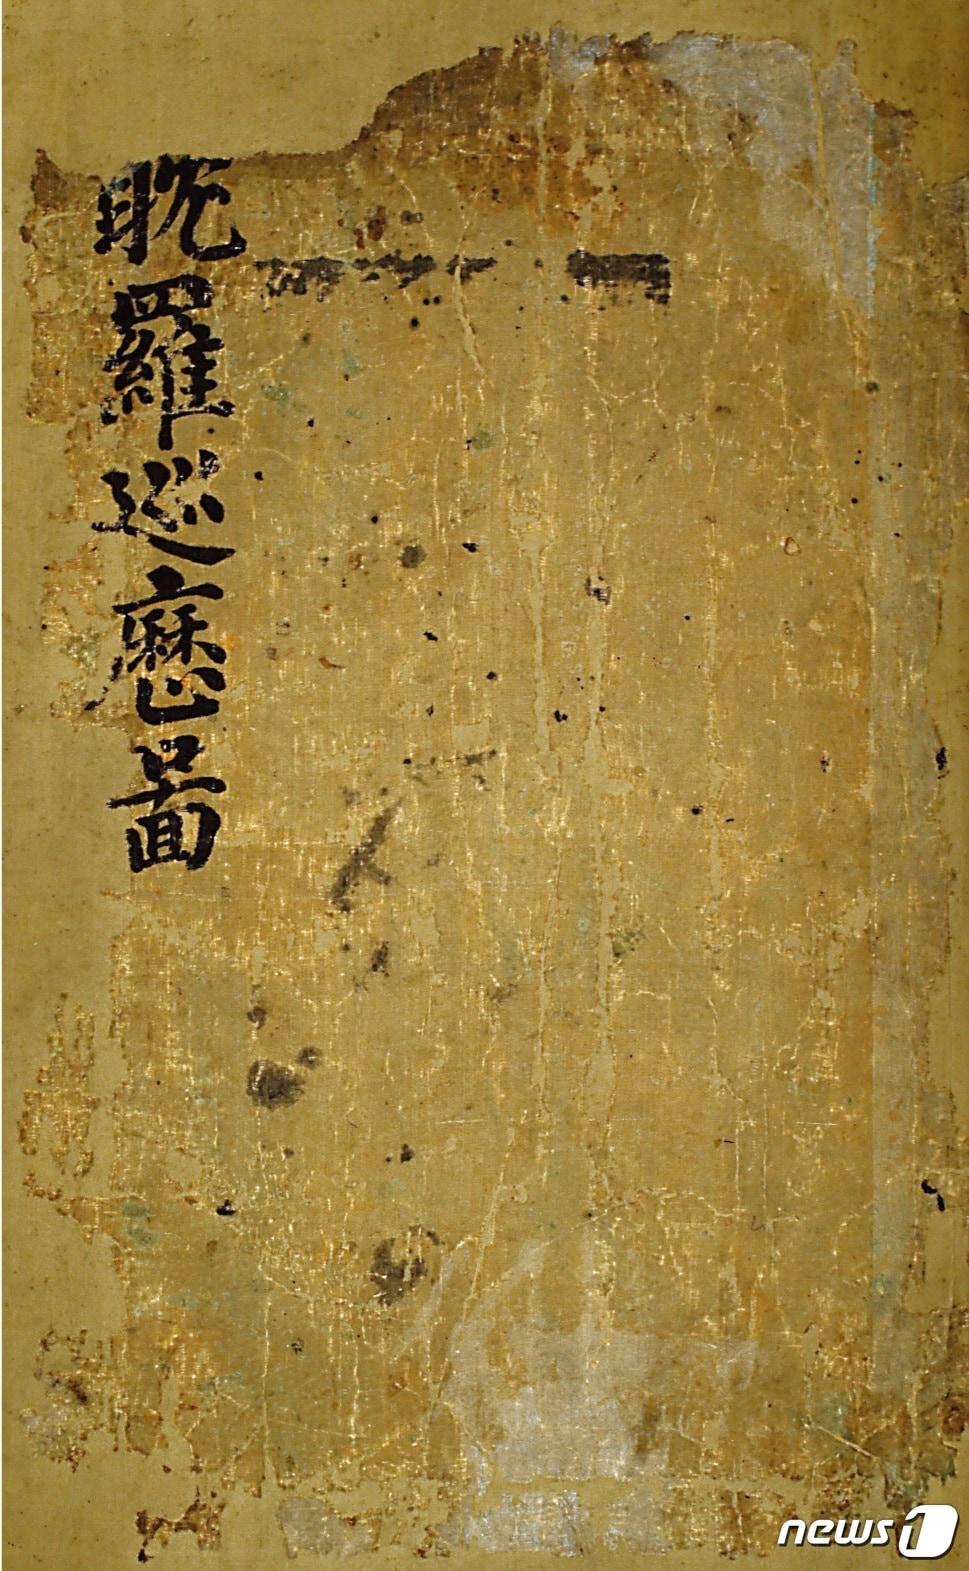 耽羅巡歷圖
news1